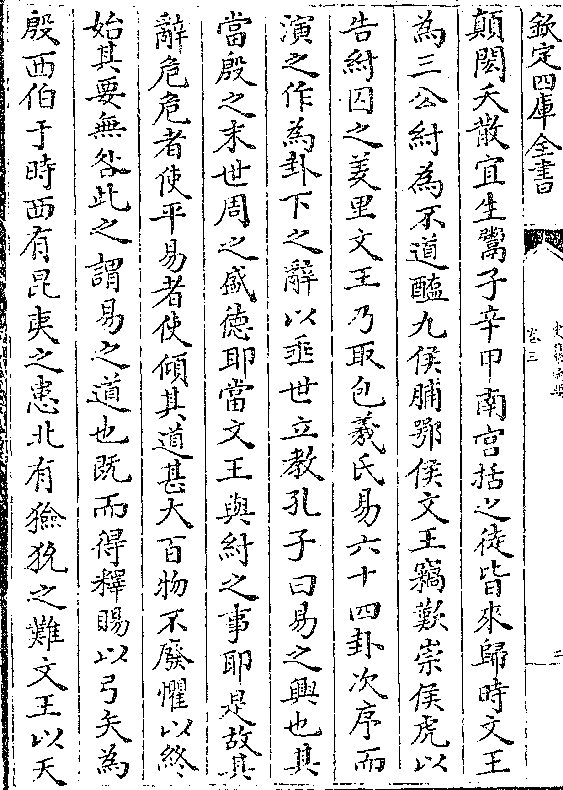 欽定四庫全書
卷三
二
顛閎夭散宜生鬻子辛甲南宫括之徒皆來歸時文王
為三公紂為不道醢九侯脯鄂侯文王竊歎崇侯虎以
告紂囚之羑里文王乃取包羲氏易六十四卦次序而
演之作為卦下之辭以垂世立教孔子曰易之興也其
當殷之末世周之盛德耶當文王與紂之事耶是故其
辭危危者使平易者使傾其道甚大百物不廢懼以終
始其要無咎此之謂易之道也既而得釋賜以弓矢為
殷西伯于時西有昆夷之患北有獫狁之難文王以天